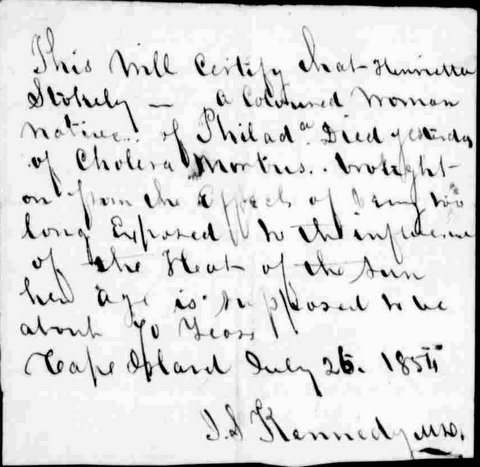 This Will Certify that Henrietta
Stokely — a Coloured Woman
native. of Philad<sup>a</sup> Died yesterday
of Cholera Morbus. brought
on from the Effects of being too
long Exposed to the influence
of the Heat of the sun
her age is supposed to be
about 70 Years
Cape Island July 26. 185
J. S Kennedy M.D.